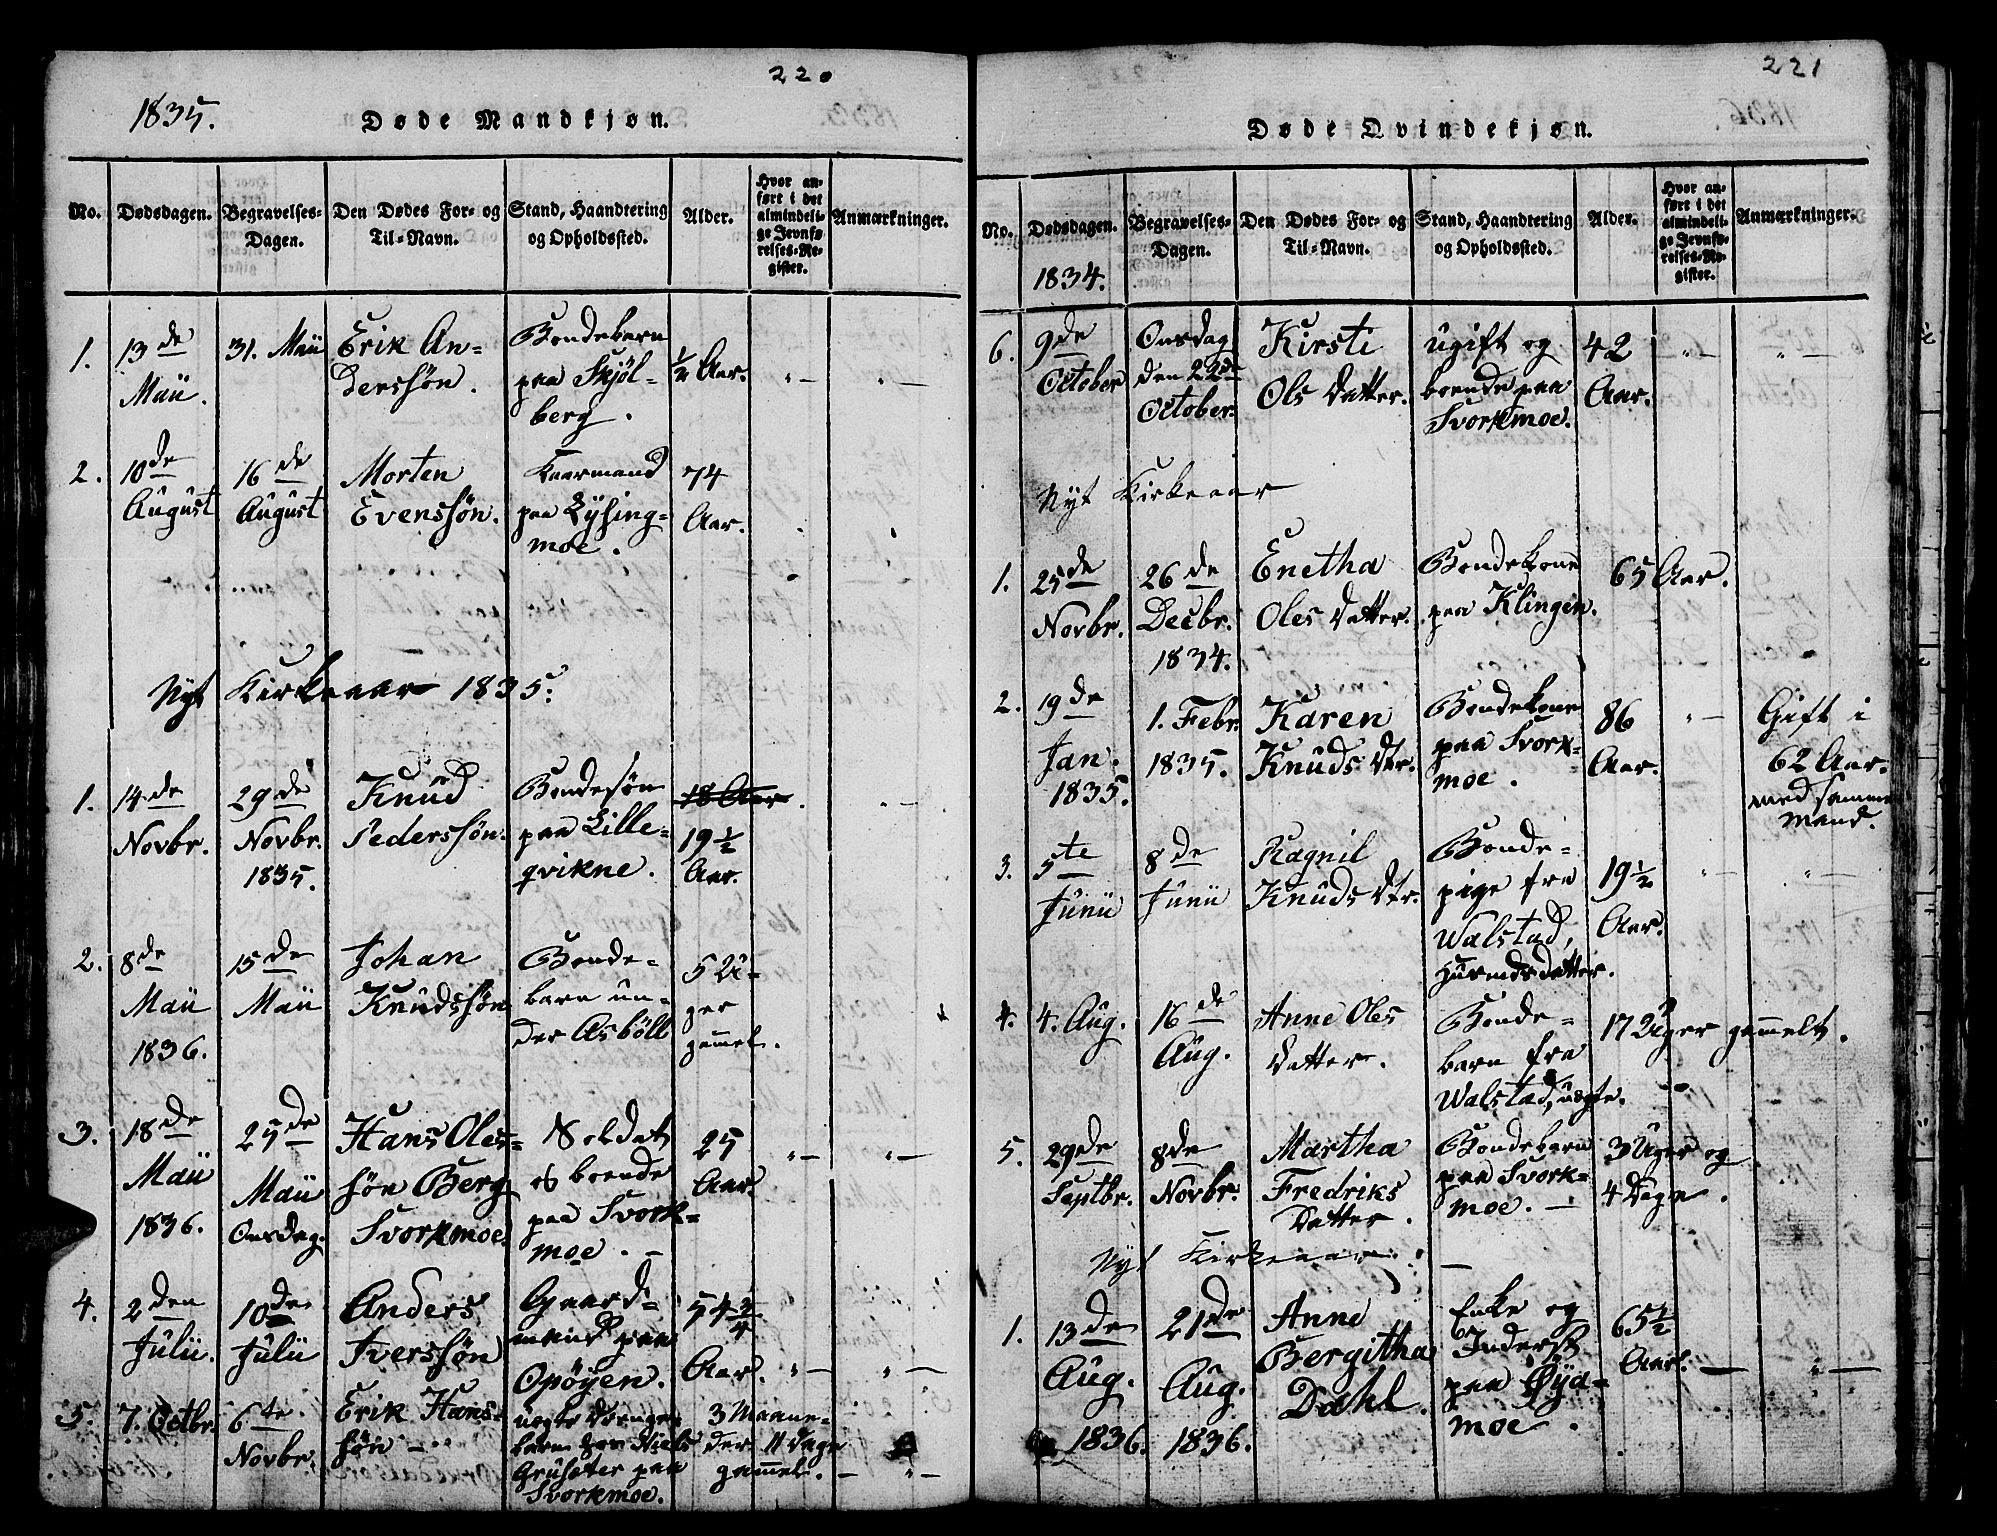 220
1835.
Døde Mandkjøn.
No.
Dødsdagen.
Begravelses-
Dagen.
Den Dødes For- og
Til-Navn.
Stand, Haandtering
og Opholdssted.
Alder.
Hvor an-
ført i det
almindeli-
ge Jevnfø-
relses-Re-
gister.
Anmærkninger.
1.
13de
Maii.
31. Maii
Erik An-
derssøn.
Bondebarn
paa Skjøl-
berg.
½ Aar.
"—
"—
2.
10de
August
16de
August
Morten
Evenssøn.
Kaarmand
paa Lysing-
moe.
74
Aar.
Nyt Kirkeaar 1835.
1.
14de
Novbr.
29de
Novbr.
1835.
Knud
Pederssøn.
Bondesøn
paa Lille-
qvikne.
18 Aar
19½
Aar.
"—
2.
8de
Maii
1836.
15de
Maii
Johan
Knudssøn
Bonde-
barn un-
der Asbøll
5 U-
ger
gammel.
3.
18de
Maii
1836.
25de
Maii
Onsdag.
Hans Oles-
søn Berg
Svorkmoe
Soldat
og boende
paa Svork-
moe. —
25
Aar.
"—
"—
4.
2den
Julii.
10de
Julii
Anders
Iverssøn
Gaard-
mand paa
Opøyen.
54¾
Aar.
"—
"—
5.
7. Octbr.
6te
Novbr.
Erik Hans-
søn —
uægte Drenge-
barn hos Niels
Gruseter paa
Svorkmoe.
3 Maane-
der 11 Dage
gammel. —
"—
221
Døde Qvindekjøn.
No.
Dødsdagen.
1834.
Begravelses-
Dagen.
Den Dødes For- og
Til-Navn.
Stand, Haandtering
og Opholdssted.
Alder.
Hvor an-
ført i det
almindeli-
ge Jevnfø-
relses-Re-
gister.
Anmærkninger.
6.
9de
October
Onsdag
den 22de
October.
Kirsti
Ols Datter.
ugift og
boende paa
Svorkmoe.
42
Aar.
"—
"—
Nyt Kirkeaar
1.
25de
Novbr.
26de
Decbr.
1834.
Enetha
Oles Datter.
Bondekone
paa Klingen.
65 Aar.
2.
19de
Jan.
1835.
1. Febr.
1835.
Karen
Knuds Dtr.
Bondekone
paa Svork-
moe.
86
Aar.
"—
Gift i
62 Aar.
med samme
Mand.
3.
5te
Junii
8de
Junii
Ragnil
Knuds Dtr.
Bonde-
pige fra
Walstad,
Huusmds datter.
19½
Aar.
"—
"—
4.
4. Aug.
16de
Aug.
Anne Oles
Datter.
Bonde-
barn fra
Walstad, uægte.
17 Uger gammelt.
5.
29de
Septbr.
8de
Novbr.
Martha
Fredriks
Datter.
Bondebarn
paa Svork-
moe. —
3 Uger og
4 Dage.
Nyt Kirkeaar.
1.
13de
Aug.
1836.
21de
Aug.
1836.
Anne
Bergitha
Dahl.
Enke og
Inderst
paa Øya-
moe.
65½
Aar. —
"—